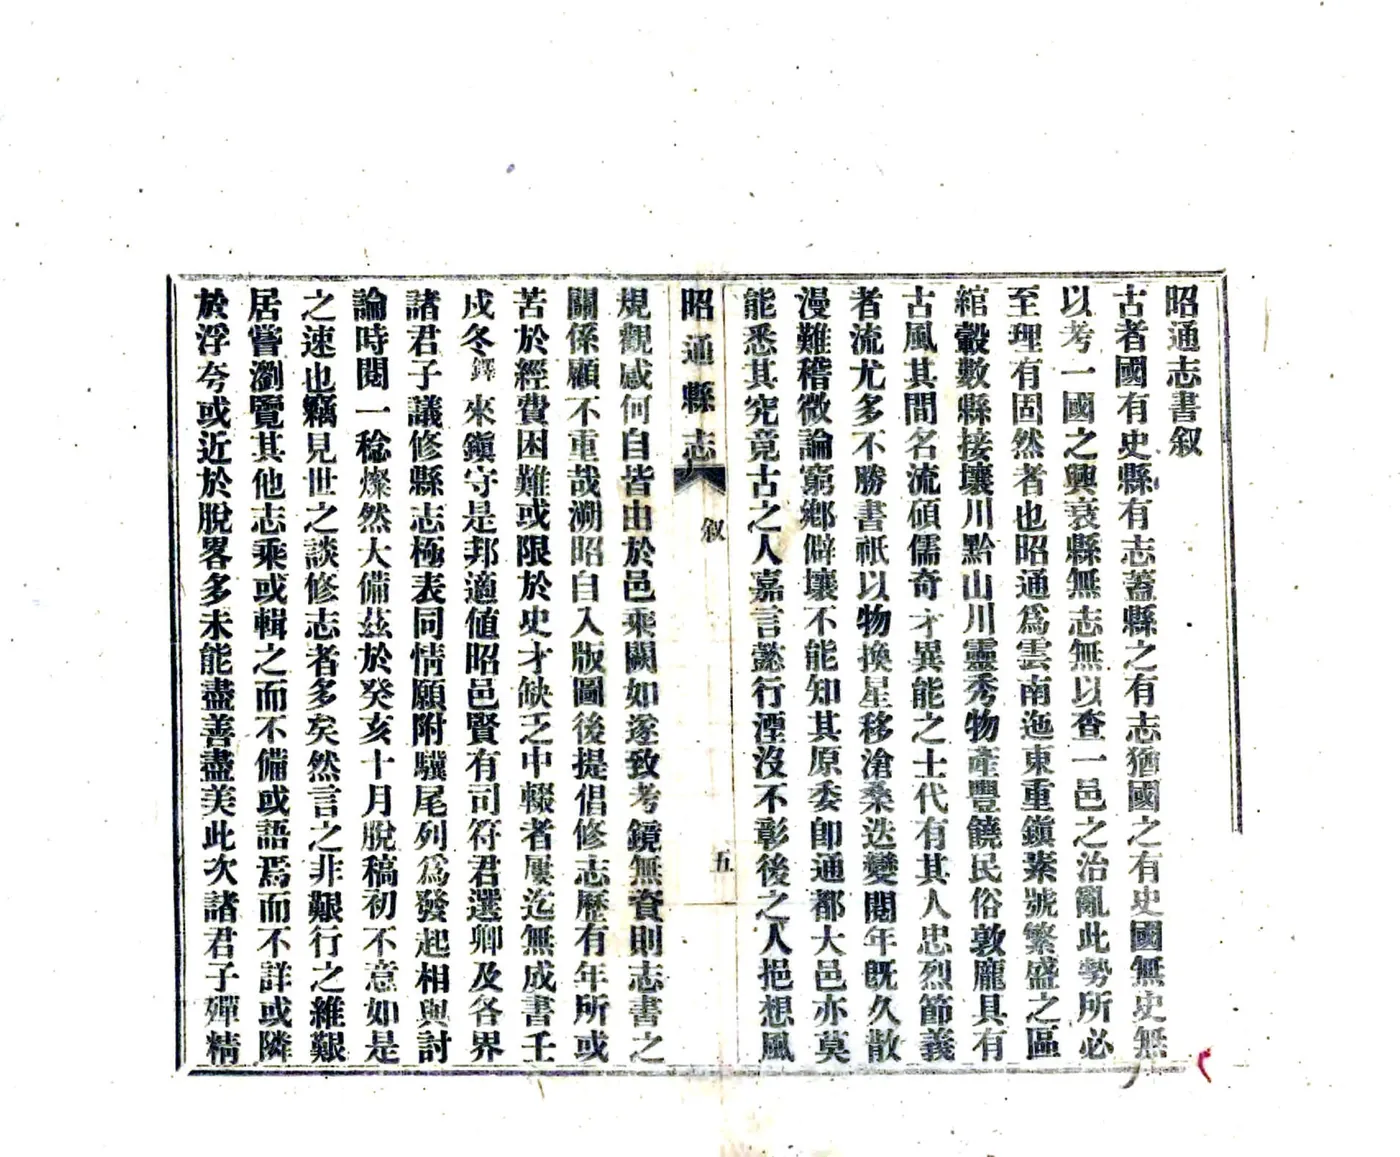 昭通志書叙
古者國有史縣有志蓋縣之有志猶國之有史國無史無
以考一國之興衰縣無志無以查一邑之治亂此勢所必
至理有固然者也昭通爲雲南迤東重鎭素號繁盛之區
綰轂數縣接壤川黔山川靈秀物產豐饒民俗敦龐具有
古風其間名流碩儒奇才異能之士代有其人忠烈節義
者流尤多不勝書祇以物換星移滄桑迭變閱年旣久散
漫難稽微論窮鄕僻壤不能知其原委卽通都大邑亦莫
能悉其究竟古之人嘉言懿行湮沒不彰後之人挹想風
昭通縣志
叙
五
規觀感何自皆由於邑乘闕如遂致考鏡無資則志書之
關係顧不重哉溯昭自入版圖後提倡修志歷有年所或
苦於經費困難或限於史才缺乏中輟者屢迄無成書壬
戍冬鐸來鎭守是邦適値昭邑賢有司符君選卿及各界
諸君子議修縣志極表同情願附驥尾列爲發起相與討
論時閱一稔燦然大備茲於癸亥十月脫稿初不意如是
之速也竊見世之談修志者多矣然言之非艱行之維艱
居嘗瀏覽其他志乘或輯之而不備或語焉而不詳或隣
於浮夸或近於脫畧多未能盡善盡美此次諸君子殫精